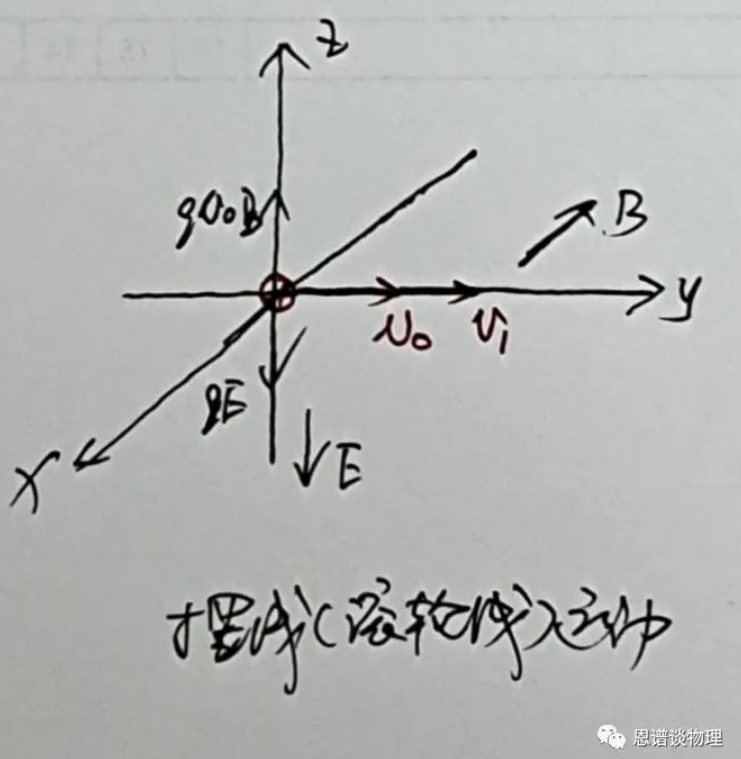 z
qv₀B
B
y
v₀ v₁
qE
E
x
摆线(滚轮线)运动
恩谱谈物理